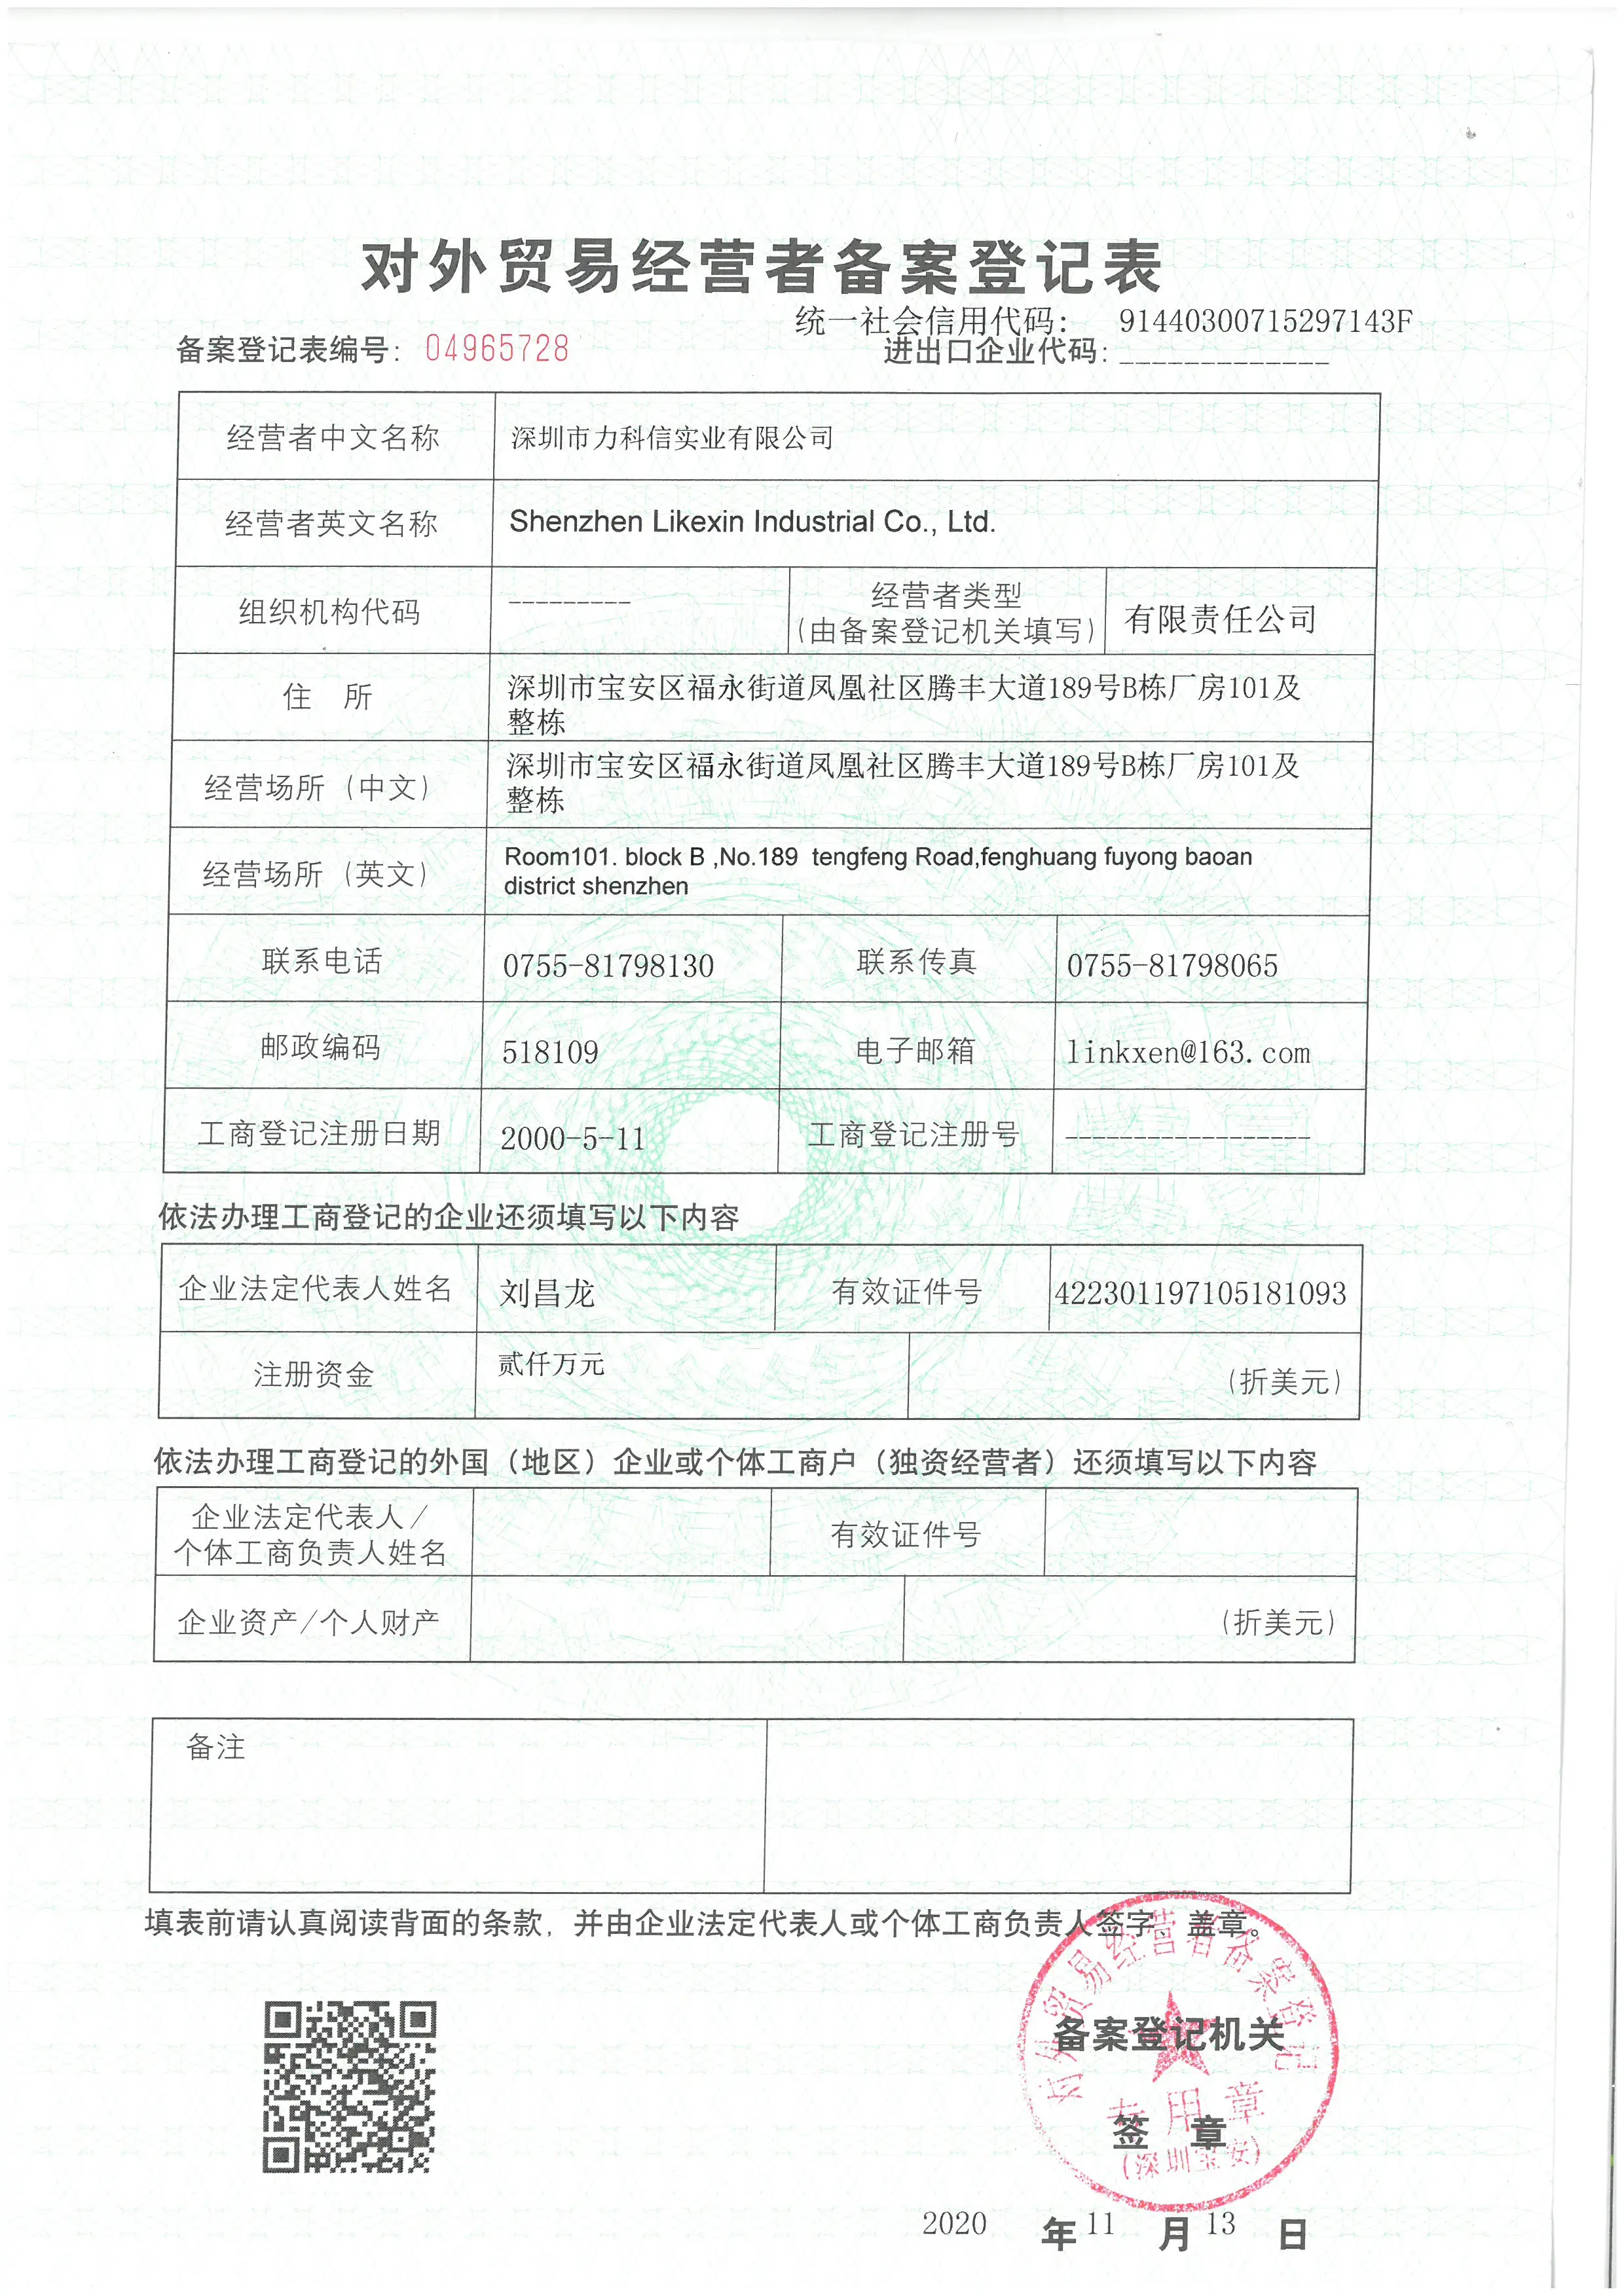 对外贸易经营者备案登记表
统一社会信用代码： 91440300715297143F
备案登记表编号：04965728
进出口企业代码：_____________
经营者中文名称 深圳市力科信实业有限公司
经营者英文名称 Shenzhen Likexin Industrial Co., Ltd.
组织机构代码 --------- 经营者类型
（由备案登记机关填写） 有限责任公司
住 所 深圳市宝安区福永街道凤凰社区腾丰大道189号B栋厂房101及
整栋
经营场所（中文） 深圳市宝安区福永街道凤凰社区腾丰大道189号B栋厂房101及
整栋
经营场所（英文） Room101. block B ,No.189 tengfeng Road,fenghuang fuyong baoan
district shenzhen
联系电话 0755-81798130 联系传真 0755-81798065
邮政编码 518109 电子邮箱 linkxen@163.com
工商登记注册日期 2000-5-11 工商登记注册号 ------------------
依法办理工商登记的企业还须填写以下内容
企业法定代表人姓名 刘昌龙 有效证件号 422301197105181093
注册资金 贰仟万元 （折美元）
依法办理工商登记的外国（地区）企业或个体工商户（独资经营者）还须填写以下内容
企业法定代表人/
个体工商负责人姓名 有效证件号
企业资产/个人财产 （折美元）
备注
填表前请认真阅读背面的条款，并由企业法定代表人或个体工商负责人签字、盖章。
对外贸易经营者备案登记
备案登记机关
专用章
签 章
（深圳宝安）
2020 年 11 月 13 日